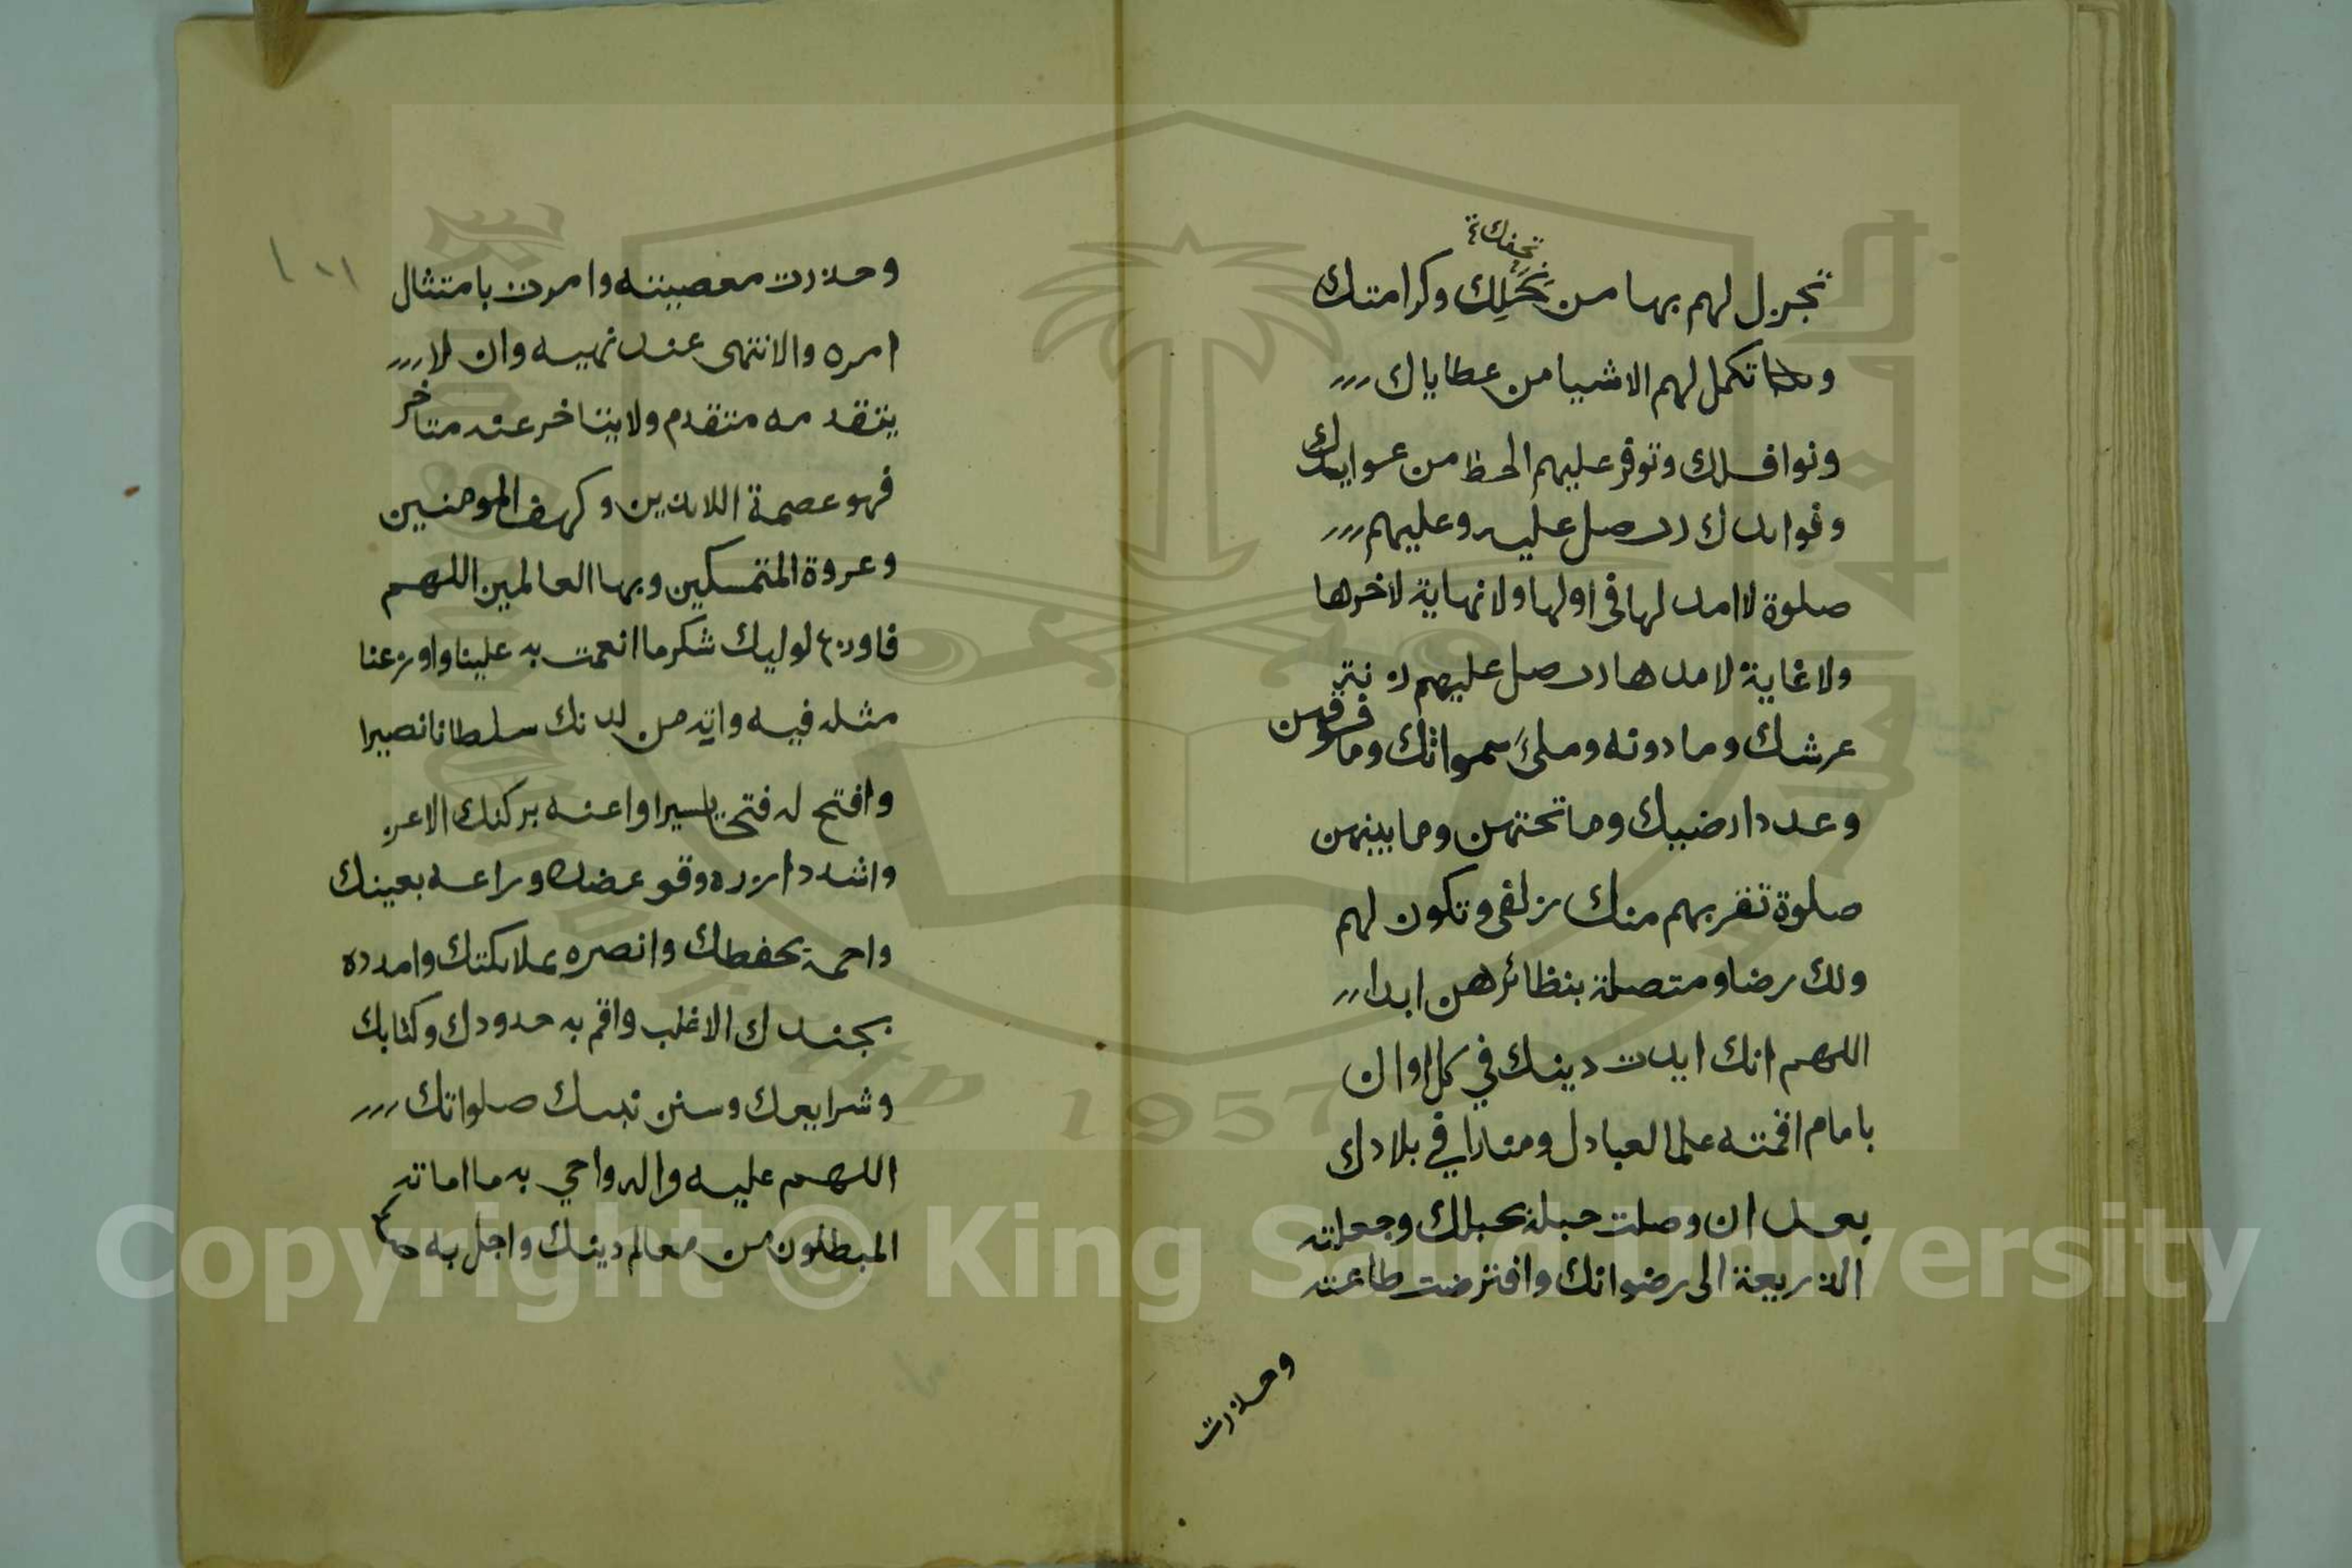 تحفك
تجزل لهم بها من نحلك وكرامتك
وتكمل لهم الاشيا من عطاياك
ونوافلك وتوفر عليهم الحظ من عوايدك
وفوايدك رب صل عليه وعليهم
صلوة لا امد لها فى اولها ولا نهاية لاخرها
ولا غاية لامدها رب صل عليهم زنة
عرشك وما دونه وملئ سمواتك وما فوقهن
وعدد ارضيك وما تحتهن وما بينهن
صلوة تقربهم منك زلفى وتكون لهم
ولك رضا ومتصلة بنظائرهن ابدا
اللهم انك ايدت دينك في كل اوان
بامام اقمته علما لعبادك ومنارا في بلادك
بعد ان وصلت حبله بحبلك وجعلته
الذريعة الى رضوانك وافترضت طاعته
وحذرت
١٠١
وحذرت معصيته وامرت بامتثال
امره والانتهى عند نهيه وان لا
يتقدمه متقدم ولا يتاخر عنه متاخر
فهو عصمة اللائذين وكهف المومنين
وعروة المتمسكين وبها العالمين اللهم
فاوزع لوليك شكر ما انعمت به علينا واوزعنا
مثله فيه واته من لدنك سلطانا نصيرا
وافتح له فتحا يسيرا واعنه بركنك الاعز
واشدد ازره وقو عضده وراعه بعينك
واحمه بحفظك وانصره بملائكتك وامدده
بجندك الاغلب واقم به حدودك وكتابك
وشرايعك وسنن نبيك صلواتك
اللهم عليه واله واحي به ما اماته
المبطلون من معالم دينك واجل به
Copyright © King Saud University
1957